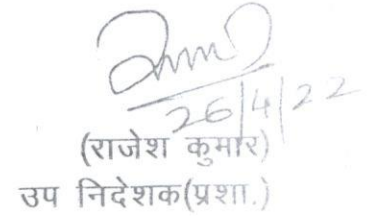 26/4/22
(राजेश कुमार)
उप निदेशक(प्रशा.)